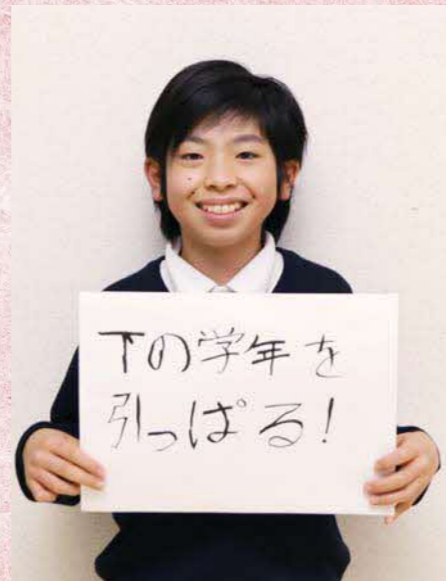 下の学年を
引っぱる!